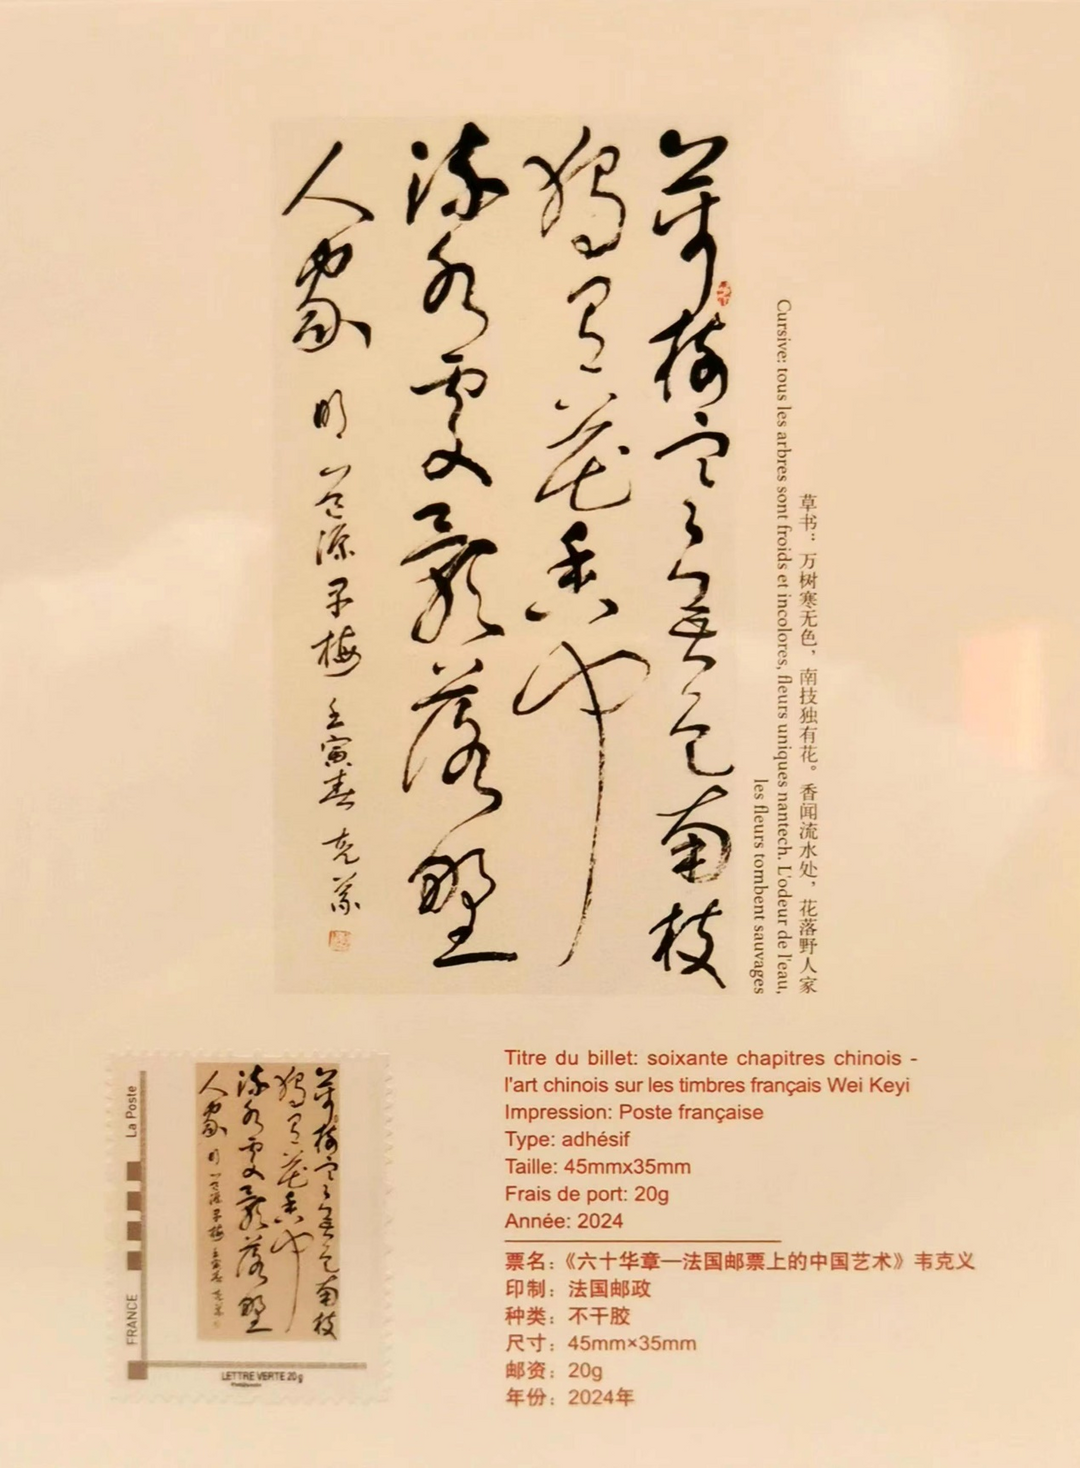 萬樹寒無色南枝
獨有花香聞
流水處影落野
人家
明 道源早梅 壬寅春 克義
草书：万树寒无色，南技独有花。香闻流水处，花落野人家
Cursive: tous les arbres sont froids et incolores, fleurs uniques nantech. L'odeur de l'eau,
les fleurs tombent sauvages
La Poste
FRANCE
萬樹寒無色南枝
獨有花香聞
流水處影落野
人家
明 道源早梅 壬寅春 克義
LETTRE VERTE 20 g
Titre du billet: soixante chapitres chinois -
l'art chinois sur les timbres français Wei Keyi
Impression: Poste française
Type: adhésif
Taille: 45mmx35mm
Frais de port: 20g
Année: 2024
票名：《六十华章—法国邮票上的中国艺术》韦克义
印制：法国邮政
种类：不干胶
尺寸：45mm×35mm
邮资：20g
年份：2024年